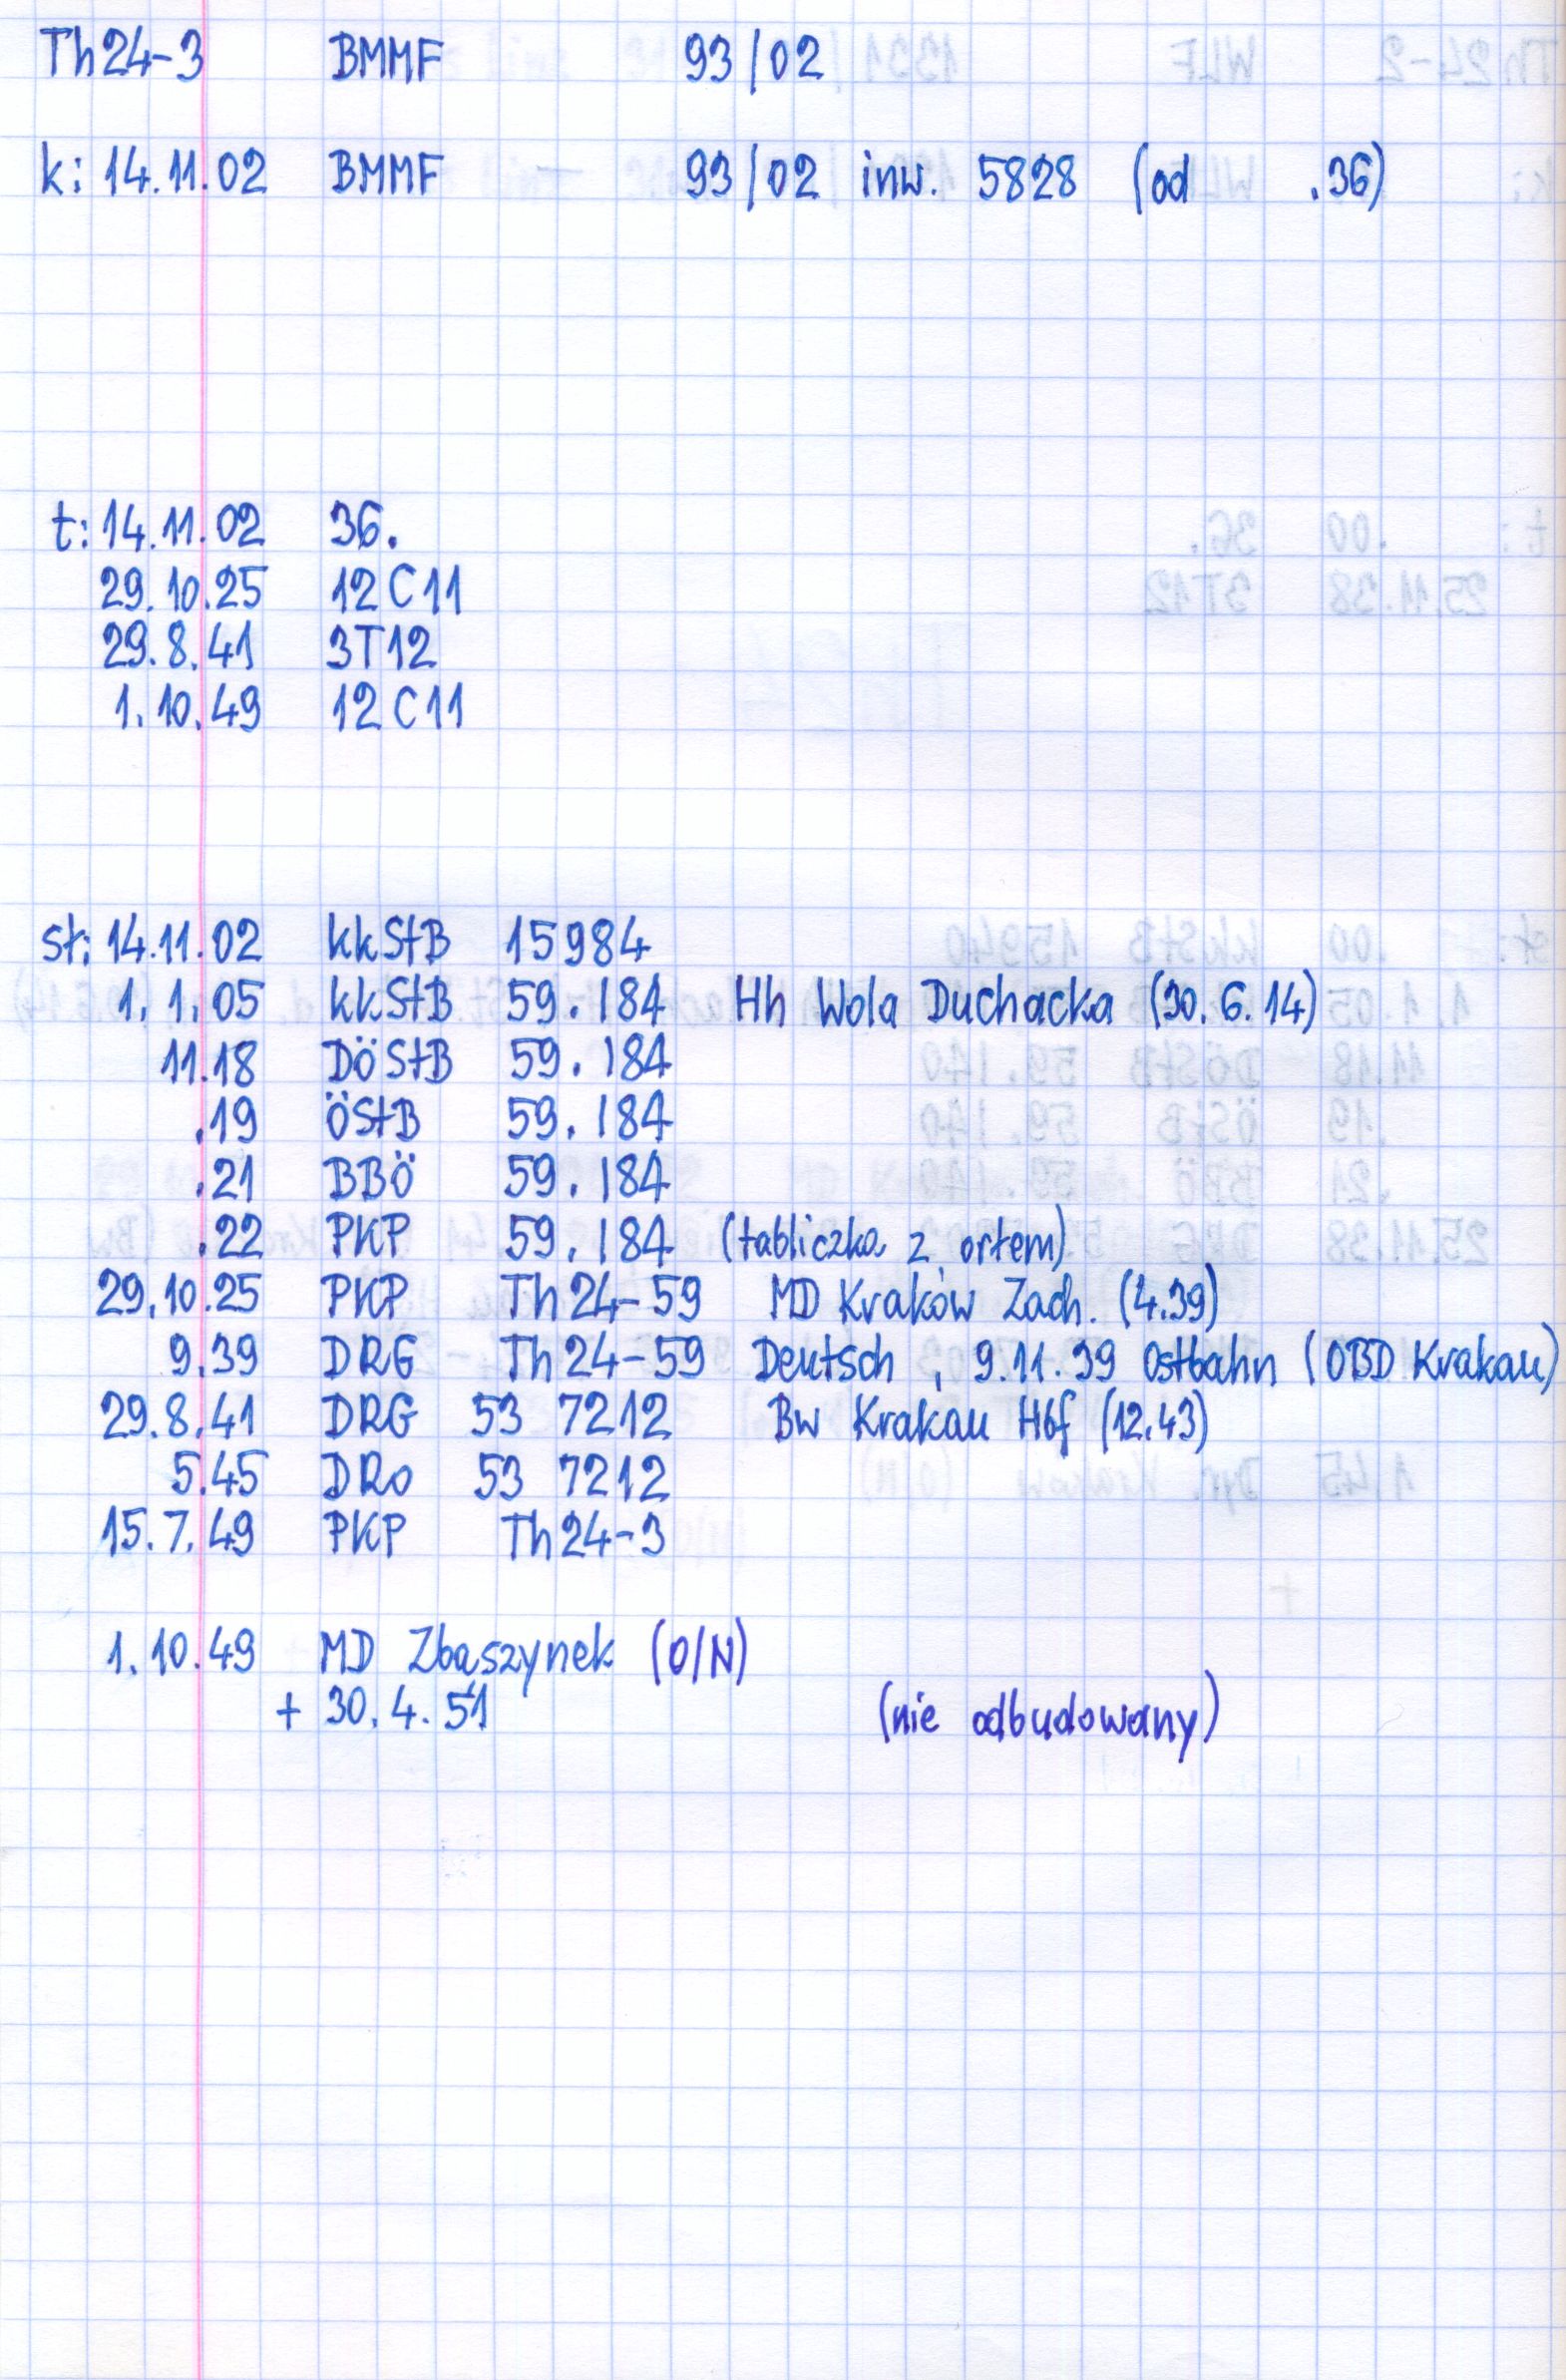 Th24-3 BMMF 93/02
k: 14.11.02 BMMF 93/02 inw. 5828 (od .36)
t: 14.11.02 36.
29.10.25 12C11
29.8.41 3T12
1.10.49 12C11
st: 14.11.02 kkStB 15984
1.1.05 kkStB 59.184 Hh Wola Duchacka (30.6.14)
11.18 DöStB 59.184
.19 ÖStB 59.184
.21 BBÖ 59.184
.22 PKP 59.184 (tabliczka z orłem)
29.10.25 PKP Th24-59 MD Kraków Zach. (4.39)
9.39 DRG Th24-59 Deutsch, 9.11.39 Ostbahn (OBD Krakau)
29.8.41 DRG 53 7212 Bw Krakau Hbf (12.43)
5.45 DRo 53 7212
15.7.49 PKP Th24-3
1.10.49 MD Zbąszynek (O/N)
+ 30.4.51 (nie odbudowany)